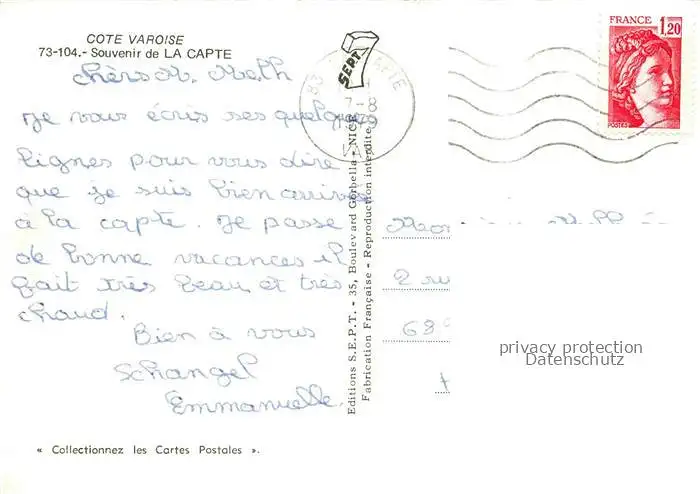 COTE VAROISE
73-104.- Souvenir de LA CAPTE
chèrs M. Meth
Je vous écris ses quelque
lignes pour vous dire
que je suis bien arrivée
à la capte. Je passe
de bonne vacances il
fait très beau et très
chaud.
Bien à vous
Schangel
Emmanuelle.
« Collectionnez les Cartes Postales ».
SEPT
Editions S.E.P.T. - 35, Boulevard Gorbella - NICE
Fabrication Française - Reproduction interdite
83
CAPTE
7-8
FRANCE
1,20
POSTES
2 ru
68
privacy protection
Datenschutz